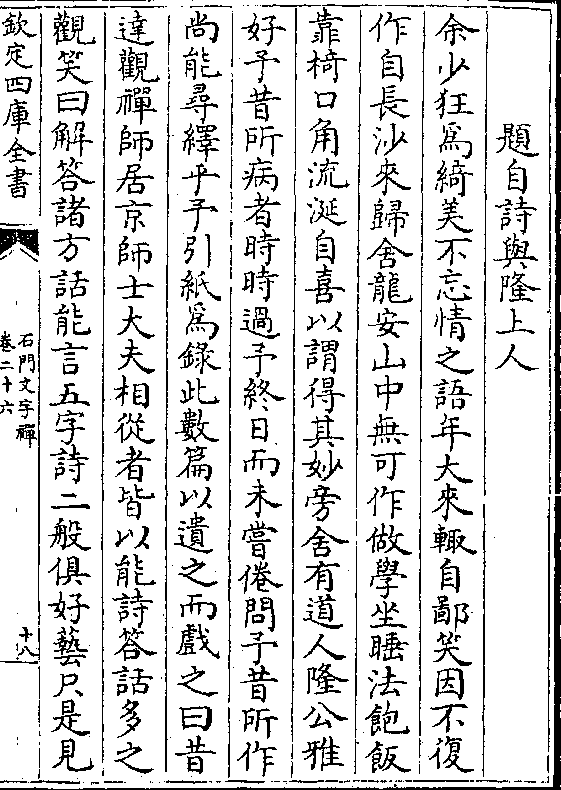 題自詩與隆上人
余少狂爲綺美不忘情之語年大來輙自鄙笑因不復
作自長沙來歸舍龍安山中無可作做學坐睡法飽飯
靠椅口角流涎自喜以謂得其妙旁舍有道人隆公雅
好予昔所病者時時過予終日而未嘗倦問予昔所作
尚能尋繹乎予引紙爲録此數篇以遺之而戲之曰昔
達觀禪師居京師士大夫相從者皆以能詩答話多之
觀笑曰解答諸方話能言五字詩二般俱好藝只是見
欽定四庫全書
石門文字禪
卷二十六
十八